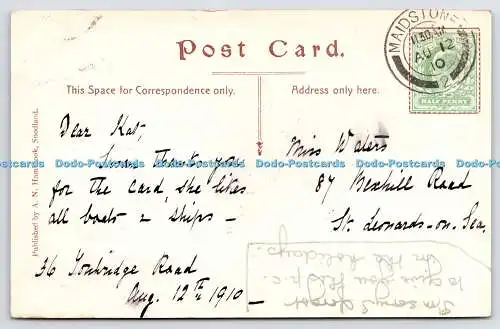 Post Card.
This Space for Correspondence only.
Address only here.
MAIDSTONE
11.30 AM
AU 12
10
2
HALF PENNY
Published by A. N. Hambrook, Snodland.
Dear Kat,
thank you
for the card, she likes
all boats & ships -
36 Tonbridge Road
Aug. 12TH 1910 -
Miss Waters
87 Bexhill Road
St. Leonards-on-Sea.
I'm sorry I forgot
to give you this p.c.
in the holidays.
Dodo-Postcards Dodo-Postcards Dodo-Postcards Dodo-Postcards Dodo-Postcards